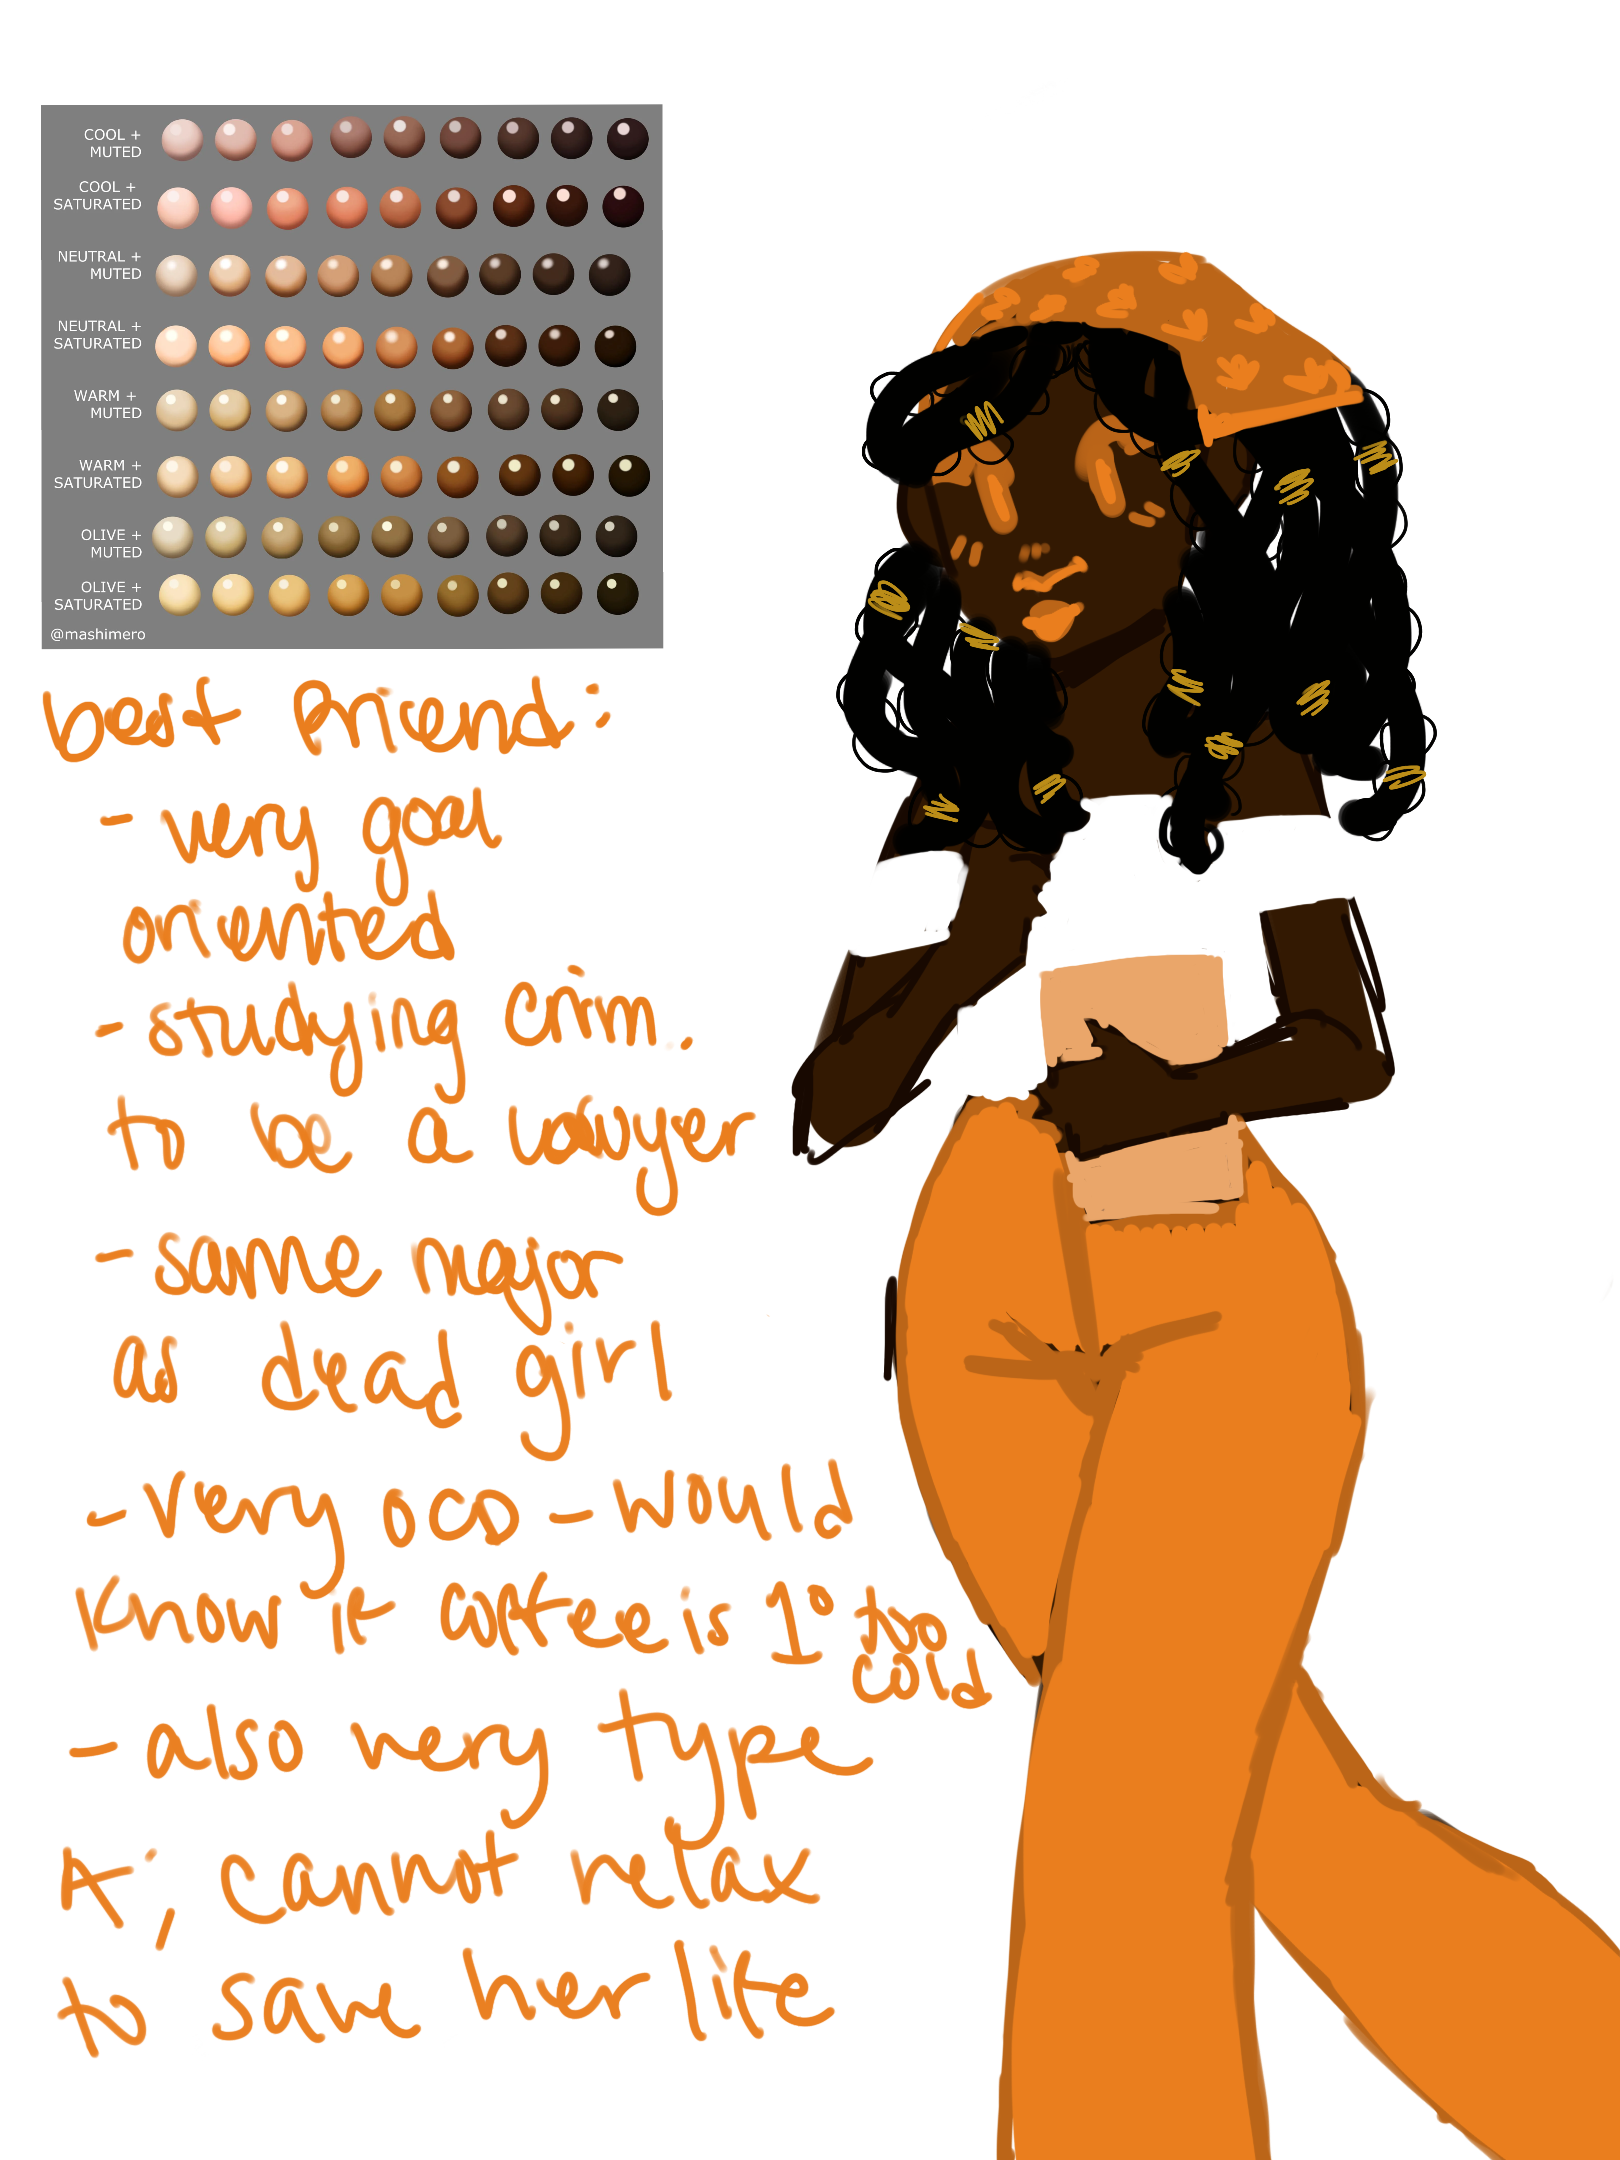 COOL +
MUTED
COOL +
SATURATED
NEUTRAL +
MUTED
NEUTRAL +
SATURATED
WARM +
MUTED
WARM +
SATURATED
OLIVE +
MUTED
OLIVE +
SATURATED
@mashimero
best friend:
- very goal
oriented
- studying crim.
to be a lawyer
- same major
as dead girl
- very OCD - would
know if coffee is 1° too
cold
- also very type
A; cannot relax
to save her life